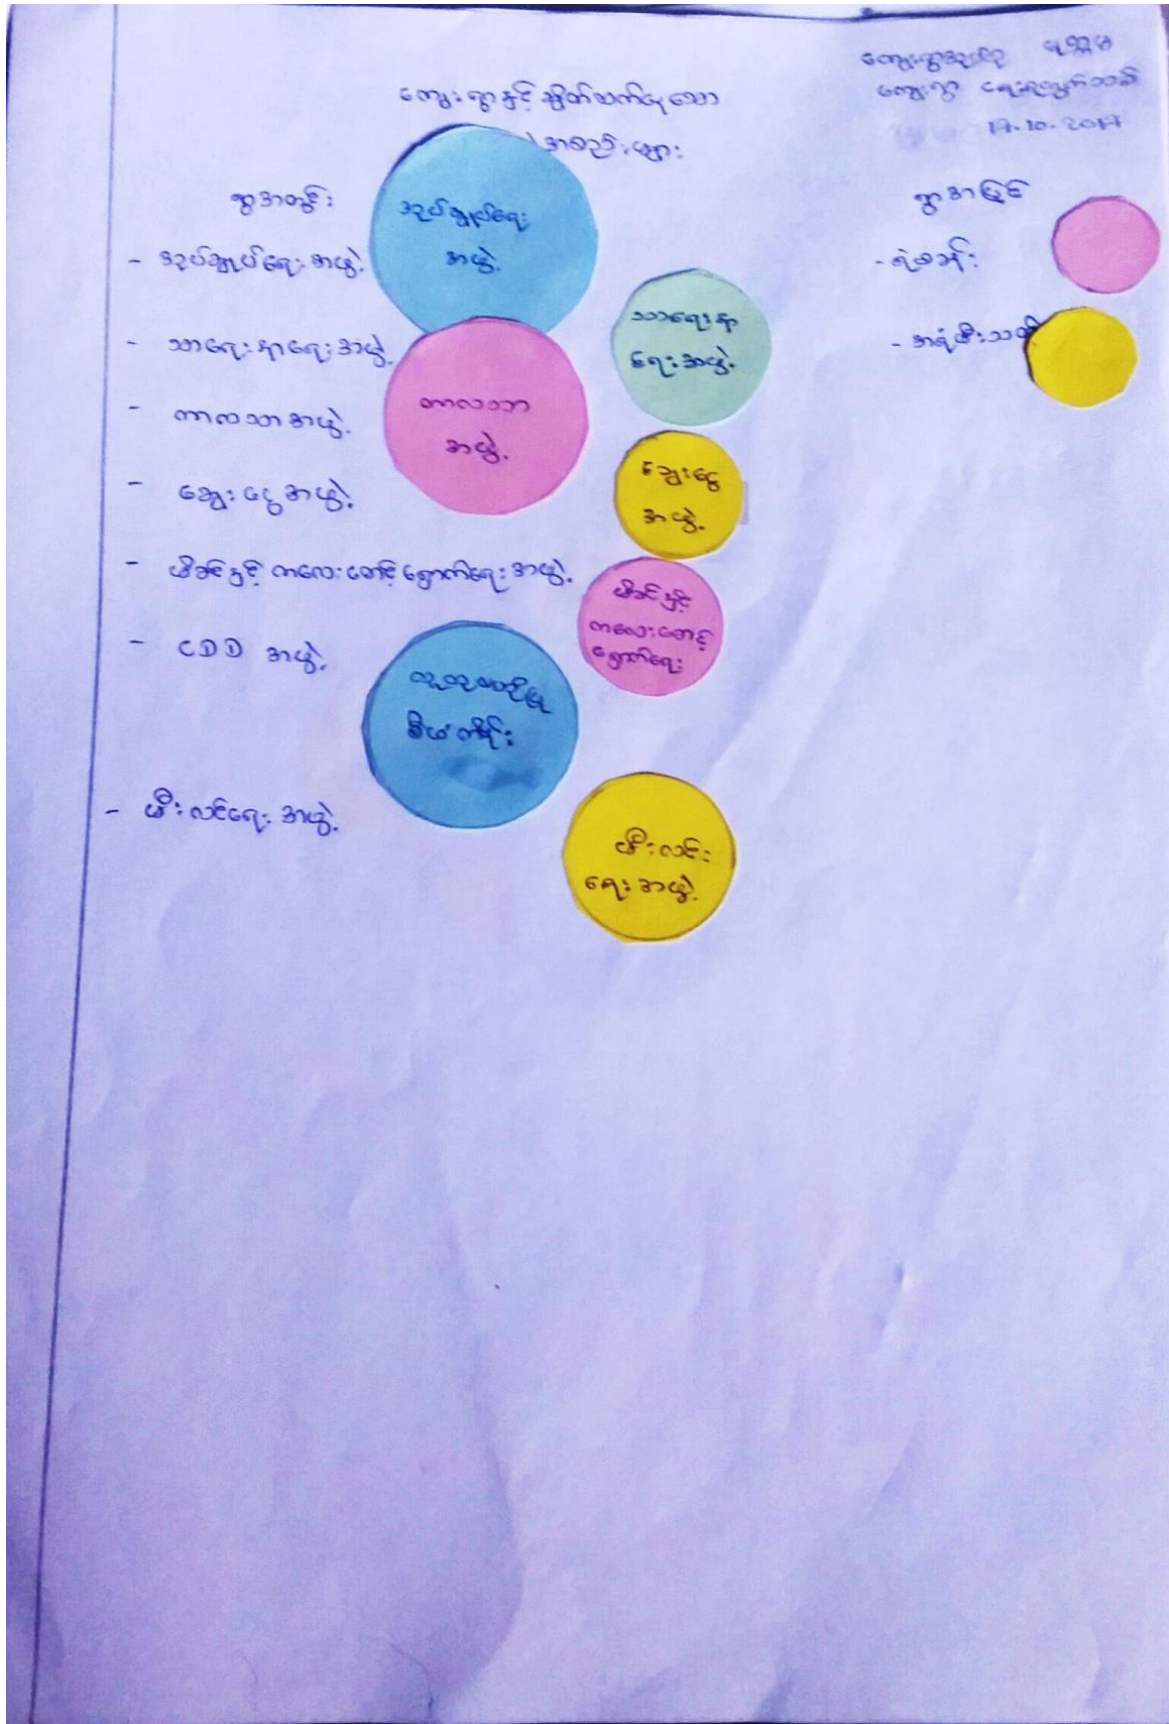 ကျေးရွာအုပ်စု
ကျေးရွာ
17.10.2017
ကျေးရွာနှင့်ချိတ်ဆက်နေသော
အဖွဲ့အစည်းများ
ရွာအတွင်း
- အုပ်ချုပ်ရေးအဖွဲ့
- သာရေးနာရေးအဖွဲ့
- ကာလသာအဖွဲ့
- ချေးငွေအဖွဲ့
- မိခင်နှင့် ကလေးစောင့်ရှောက်ရေးအဖွဲ့
- CDD အဖွဲ့
- မီးလင်းရေးအဖွဲ့
အုပ်ချုပ်ရေး
အဖွဲ့
သာရေးနာ
ရေးအဖွဲ့
ကာလသာ
အဖွဲ့
ချေးငွေ
အဖွဲ့
မိခင်နှင့်
ကလေးစောင့်
ရှောက်ရေး
လူထုဗဟိုပြု
စီမံကိန်း
မီးလင်း
ရေးအဖွဲ့
ရွာအပြင်
- ရဲစခန်း
- အရံမီးသတ်